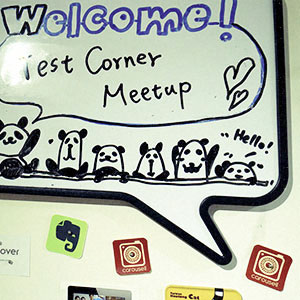 Welcome!
Test Corner
Meetup
Hello!
over
carousell
carousell